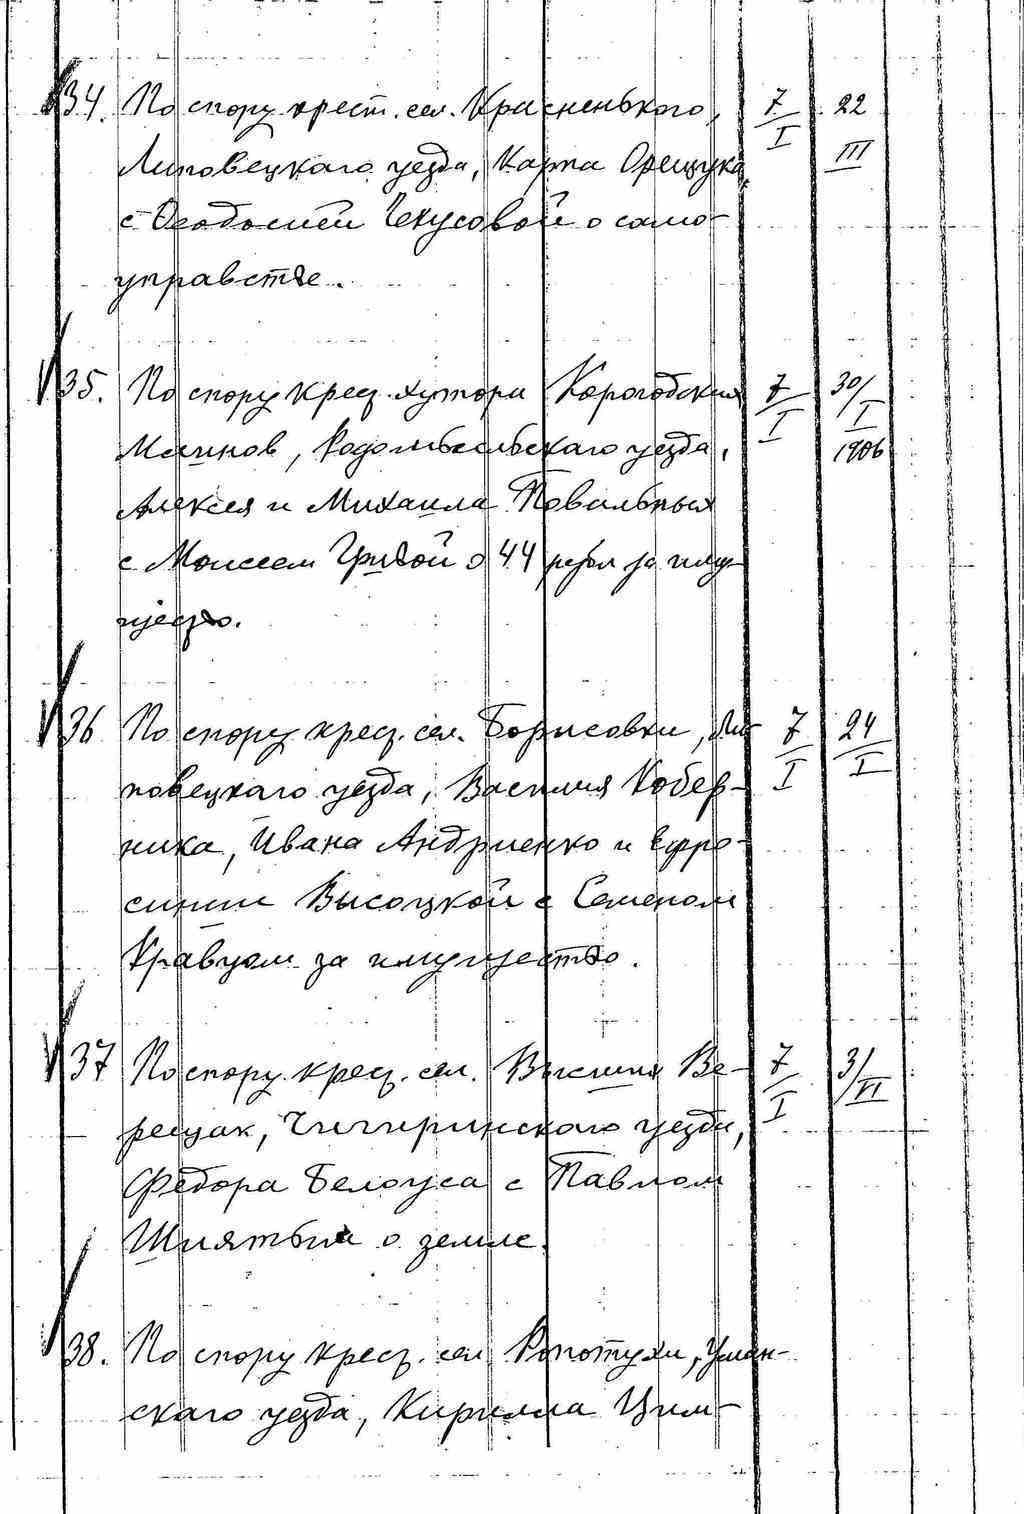 34. По спору крест. сел. Красненького, 7/I 22
Липовецкаго уезда, Карпа Орещука III
с Феодосией Чекусовой о само-
управстве.
35. По спору крест. хутора Корогодских 7/I 30/I
Млинов, Радомысльскаго уезда, 1906
Алексея и Михаила Повальных
с Моисеем Грибой о 44 рубл за иму-
щество.
36 По спору крест. сел. Борисовки, Ли- 7/I 24/I
повецкаго уезда, Василия Кобер-
ника, Ивана Андриенко и Ефро-
синии Высоцкой с Семеном
Кравцом за имущество.
37 По спору крест. сел. Высших Ве- 7/I 3/VI
рещак, Чигиринскаго уезда,
Федора Белоуса с Павлом
о земле.
38. По спору крест. сел Ропотухи, Уман-
скаго уезда, Кирилла Цим-